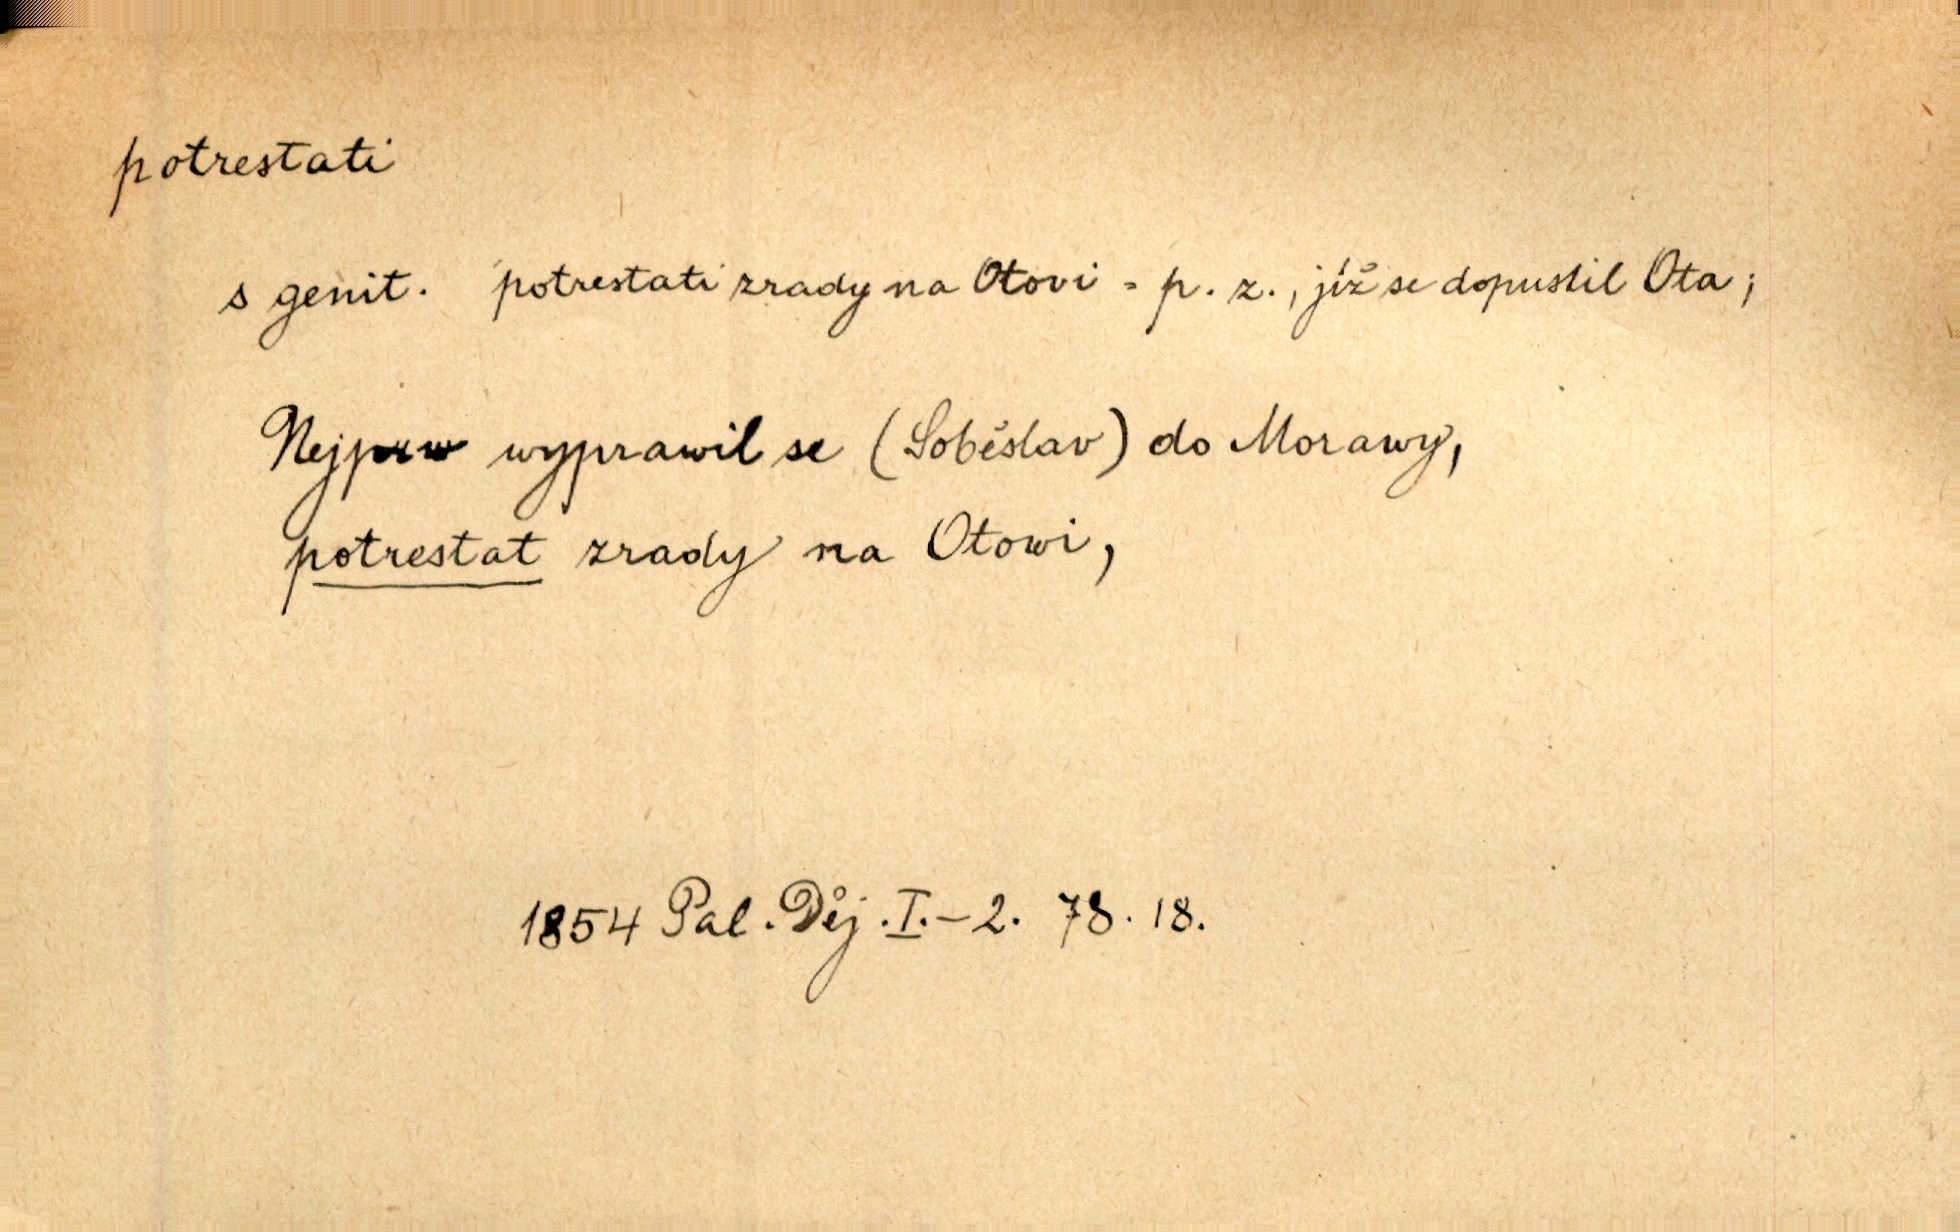 potrestati
s genit. potrestati zrady na Otovi = p. z., jíž se dopustil Ota;
Nejprw wyprawil se (Soběslav) do Morawy,
potrestat zrady na Otowi,
1854 Pal. Děj. I.-2. 78. 18.